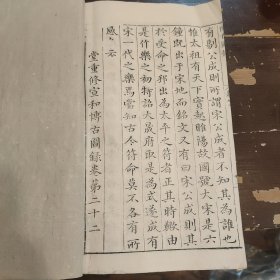 有剿公成則所謂宋公成者不知其為誰也
惟太祖有天下實起睢陽故國號大宋是六
鐘既出于宋地而銘文又有曰宋公成則其
於受命之邦出為太平之符者正其時歟由
是作樂之初特詔大晟府取是為式遂成有
宋一代之樂焉嘗知古今符命莫不各有所
感如
堂重修宣和博古圖錄卷第二十二